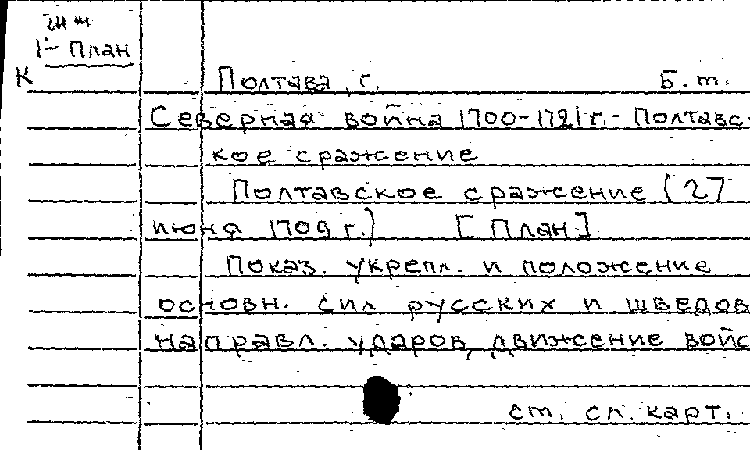 1- План
К
Полтава, г. Б.т.
Северная война 1700-1721г.- Полтавс-
кое сражение
Полтавское сражение (27
июня 1709 г.) [План]
Показ. укрепл. и положение
основн. сил русских и шведов
направл. ударов, движение войс
ст. сл. карт.